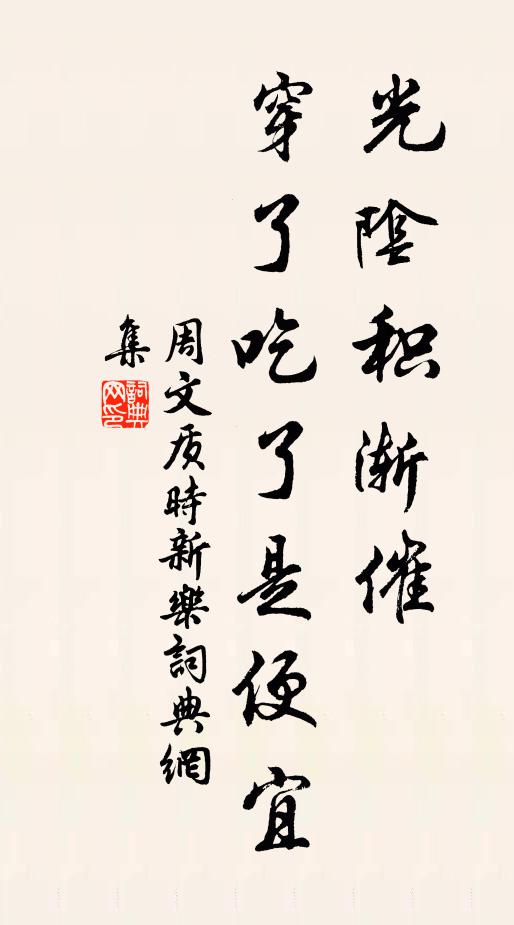 光陰积渐催
穿了吃了是便宜
周文质時新樂詞典網
集
詞典
网印